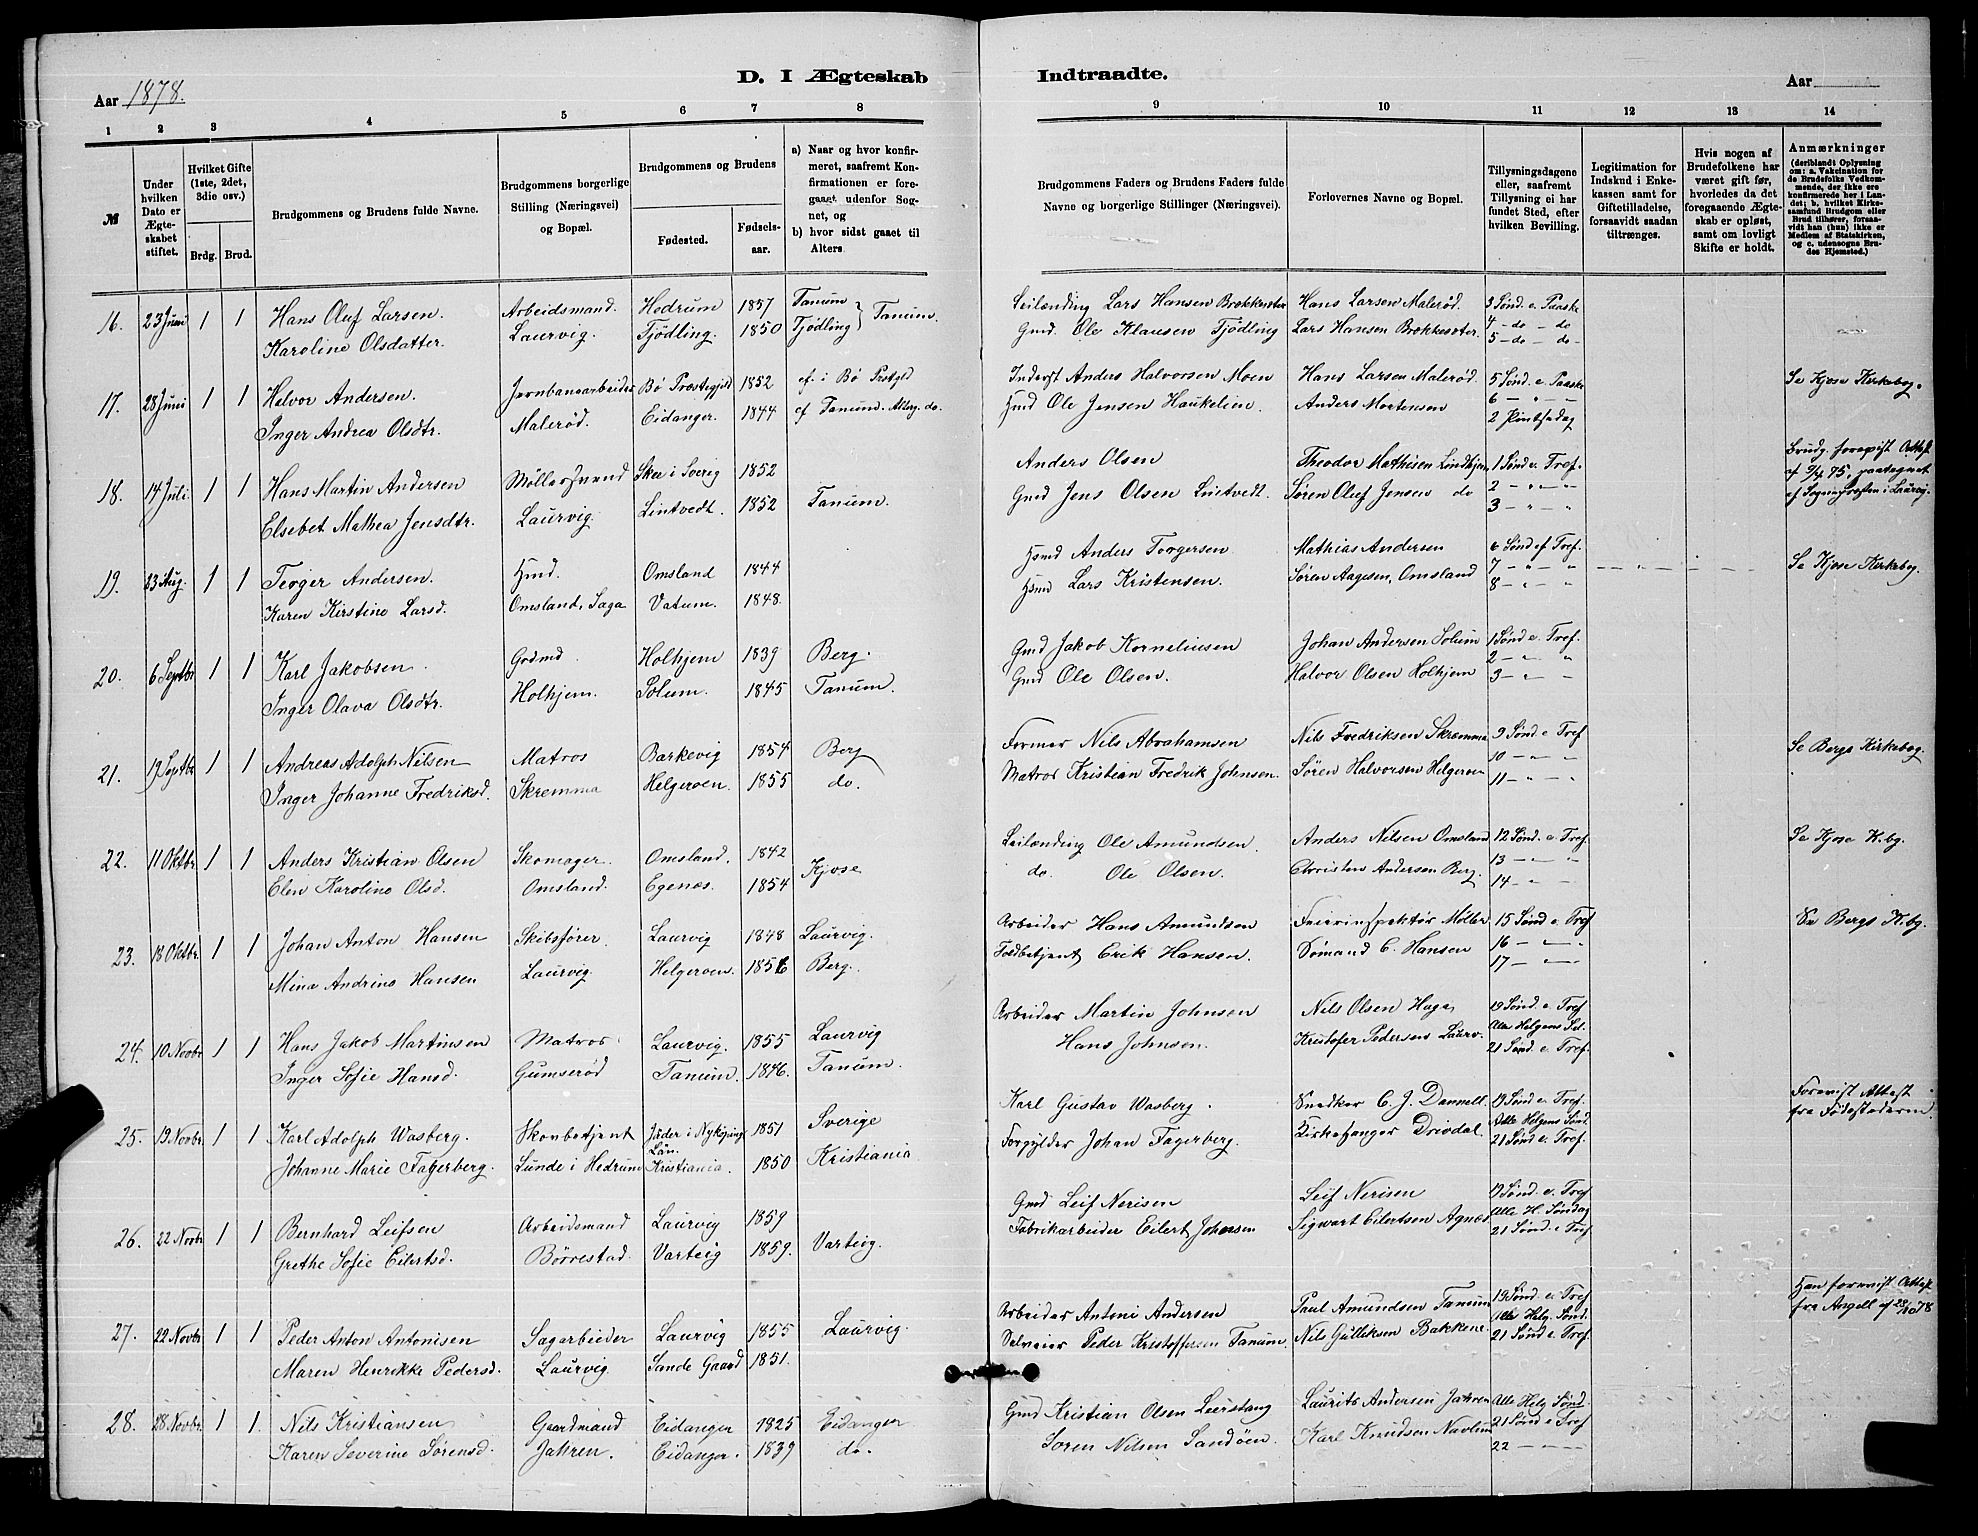 D. I Ægteskab
Indtraadte.
Aar 1878.
Aar
1 2 3 4 5 6 7 8
9 10 11 12 13 14
№
Under hvilken Dato er Ægteskabet stiftet.
Hvilket Gifte (1ste, 2det, 3die osv.)
Brdg. Brud.
Brudgommens og Brudens fulde Navne.
Brudgommens borgerlige Stilling (Næringsvei) og Bopæl.
Brudgommens og Brudens
Fødested.
Fødselsaar.
a) Naar og hvor konfirmeret, saafremt Konfirmationen er foregaaet udenfor Sognet, og
b) hvor sidst gaaet til Alters.
Brudgommens Faders og Brudens Faders fulde Navne og borgerlige Stillinger (Næringsvei).
Forlovernes Navne og Bopæl.
Tillysningsdagene eller, saafremt Tillysning ei har fundet Sted, efter hvilken Bevilling.
Legitimation for Indskud i Enkekassen samt for Giftetilladelse, forsaavidt saadan tiltrænges.
Hvis nogen af Brudefolkene har været gift før, hvorledes da det foregaaende Ægteskab er opløst, samt om lovligt Skifte er holdt.
Anmærkninger
(deriblandt Oplysning om: a. Vakcination for de Brudefolks Vedkommende, der ikke ere konfirmerede her i Landet; b. hvilket Kirkesamfund Brudgom eller Brud tilhører, forsaavidt han (hun) ikke er Medlem af Statskirken, og c. udensogns Brudes Hjemsted.)
16. 23 Juni 1 1 Hans Oluf Larsen. Arbeidsmand. Hedrum 1857 Tanum } Tanum. Leilænding Lars Hansen Brekkesæter Hans Larsen Malerød. 3 Sønd. e. Paaske
Karoline Olsdatter. Laurvig. Tjødling. 1850 Tjødling Gmd. Ole Klausen Tjødling Lars Hansen Brekkesæter. 4 - do - do
5 - do - do -
17. 28 Juni 1 1 Halvor Andersen. Jernbanearbeider Bø Præstegjeld 1852 cf. i Bø Prstgld Inderst Anders Halvorsen Moen Hans Larsen Malerød 5 Sønd. e. Paaske Se Kjose Kirkebog.
Inger Andrea Olsdtr. Malerød. Eidanger. 1844 cf Tanum. Alterg. do. Hmd Ole Jensen Haukelien. Anders Mortensen 6 - " - -
2 Pintsedag
18. 14 Juli. 1 1 Hans Martin Andersen Møllersvend Skee i Sverig 1852 Anders Olsen Theodor Mathisen Lindhjem 1 Sønd e. Tref. Brudg. forevist Attest
Elsebet Mathea Jensdtr. Laurvig. Lintvedt. 1852 Tanum. Gmd Jens Olsen Lintvedt. Søren Oluf Jensen do 2 - " - " af 9/4 75, paategnet
3 - " - " af Sognepræsten i Laurvig.
19. 23 Aug. 1 1 Teoger Andersen. Hmd. Omsland 1844 Hsmd Anders Torgersen Mathias Andersen 6 Sønd ef Tref. Se Kjose Kirkebog.
Karen Kirstine Larsd. Omsland, Saga Vatum. 1848. Hsmd Lars Kristensen. Søren Aagesen, Omsland 7 - " - "
8 - " - "
20. 6 Septbr 1 1 Karl Jakobsen. Grdmd. Holhjem 1839 Berg. Gmd Jakob Korneliusen Johan Andersen Solum 1 Sønd e. Tref.
Inger Olava Olsdtr. Holhjem. Solum. 1845 Tanum. Gmd Ole Olsen. Halvor Olsen Holhjem 2 - " "
3 - " - "
21. 19 Septbr 1 1 Andreas Adolph Nilsen Matros Barkevig 1854 Berg Former Nils Abrahamsen Nils Fredriksen Skremma 9 Sønd. e Tref Se Bergs Kirkebog
Inger Johanne Fredriksd. Skremma Helgeroen. 1855 do. Matros Kristian Fredrik Johnsen. Søren Halvorsen Helgeroen 10 - " - "
11 - " - "
22. 11 Oktbr 1 1 Anders Kristian Olsen Skomager. Omsland. 1842 Kjose Leilænding Ole Amundsen. Anders Nilsen Omsland 12 Sønd. e. Tref. Se Kjose K.bg.
Elen Karoline Olsd. Omsland. Egenæs. 1854 do. Ole Olsen. Christen Andersen Berg. 13 - " - "
14 - " - "
23. 18 Oktbr. 1 1 Johan Anton Hansen Skibsfører. Laurvig 1848 Laurvig. Arbeider Hans Amundsen Feierinspektør Møller 15 Sønd. e Tref Se Bergs K.bg.
Mina Andrine Hansen Laurvig. Helgeroen. 1856 Berg. Toldbetjent Erik Hansen. Sømand C. Hansen 16 - " - "
17 - " - "
24. 10 Novbr 1 1 Hans Jakob Martinsen Matros. Laurvig. 1855 Laurvig Arbeider Martin Johnsen Nils Olsen Haga 19 Sønd. e. Tref
Inger Sofie Hansd. Gumserød Tanum. 1846. Tanum. Hans Johnsen. Kristofer Pedersen Laurv. Alle Helgens S.
21 Sønd. e. Tref.
25. 19. Novbr. 1 1 Karl Adolph Wasberg. Skovbetjent Jäder i Nykjöping Län. 1851 Sverige Karl Gustav Wasberg. Snedker C. J. Dannell. 19 Sønd. e. Tref. Forevist Attest
Johanne Marie Fagerberg. Lunde i Hedrum Kristiania. 1850 Kristiania Forgylder Johan Fagerberg. Kirkesanger Drivdal. Alle Helgens Sønd. fra Fødestederne
21 Sønd e. Tref.
26. 22 Novbr 1 1 Bernhard Leifsen Arbeidsmand Laurvig 1859 Gmd Leif Nerisen Leif Nerisen 19 Sønd. e. Tref
Grethe Sofie Eilertsd. Børrestad. Varteig 1859. Varteig. Fabrikarbeider Eilert Johnsen Sigwart Eilertsen Agnæs Alle H. Søndag
21 Sønd. e Tref
27. 22 Novbr 1 1 Peder Anton Antonisen Sagarbeider Laurvig 1855 Laurvig. Arbeider Antoni Andersen Paul Amundsen Tanum 19 Sønd. e. Tref Han forevist Attest
Maren Henrikke Pedersd. Laurvig. Sande Gaard 1851. Selveier Peder Kristoffersen Tanum. Nils Gulliksen Bakkene. Alle Helg. Sønd. fra Angell af 28/10 78
21 Sønd e. Tref.
28. 28. Novbr 1 1. Nils Kristiansen Gaardmand Eidanger 1825 Eidanger Gmd Kristian Olsen Leerstang Laurits Andersen Jahren Alle Helg Sønd.
Karen Severine Sørensd. Jahren. Eidanger. 1839 do. Soren Nilsen Sandøen. Karl Knudsen Navlund 21 Sønd e Tref
22 - - -